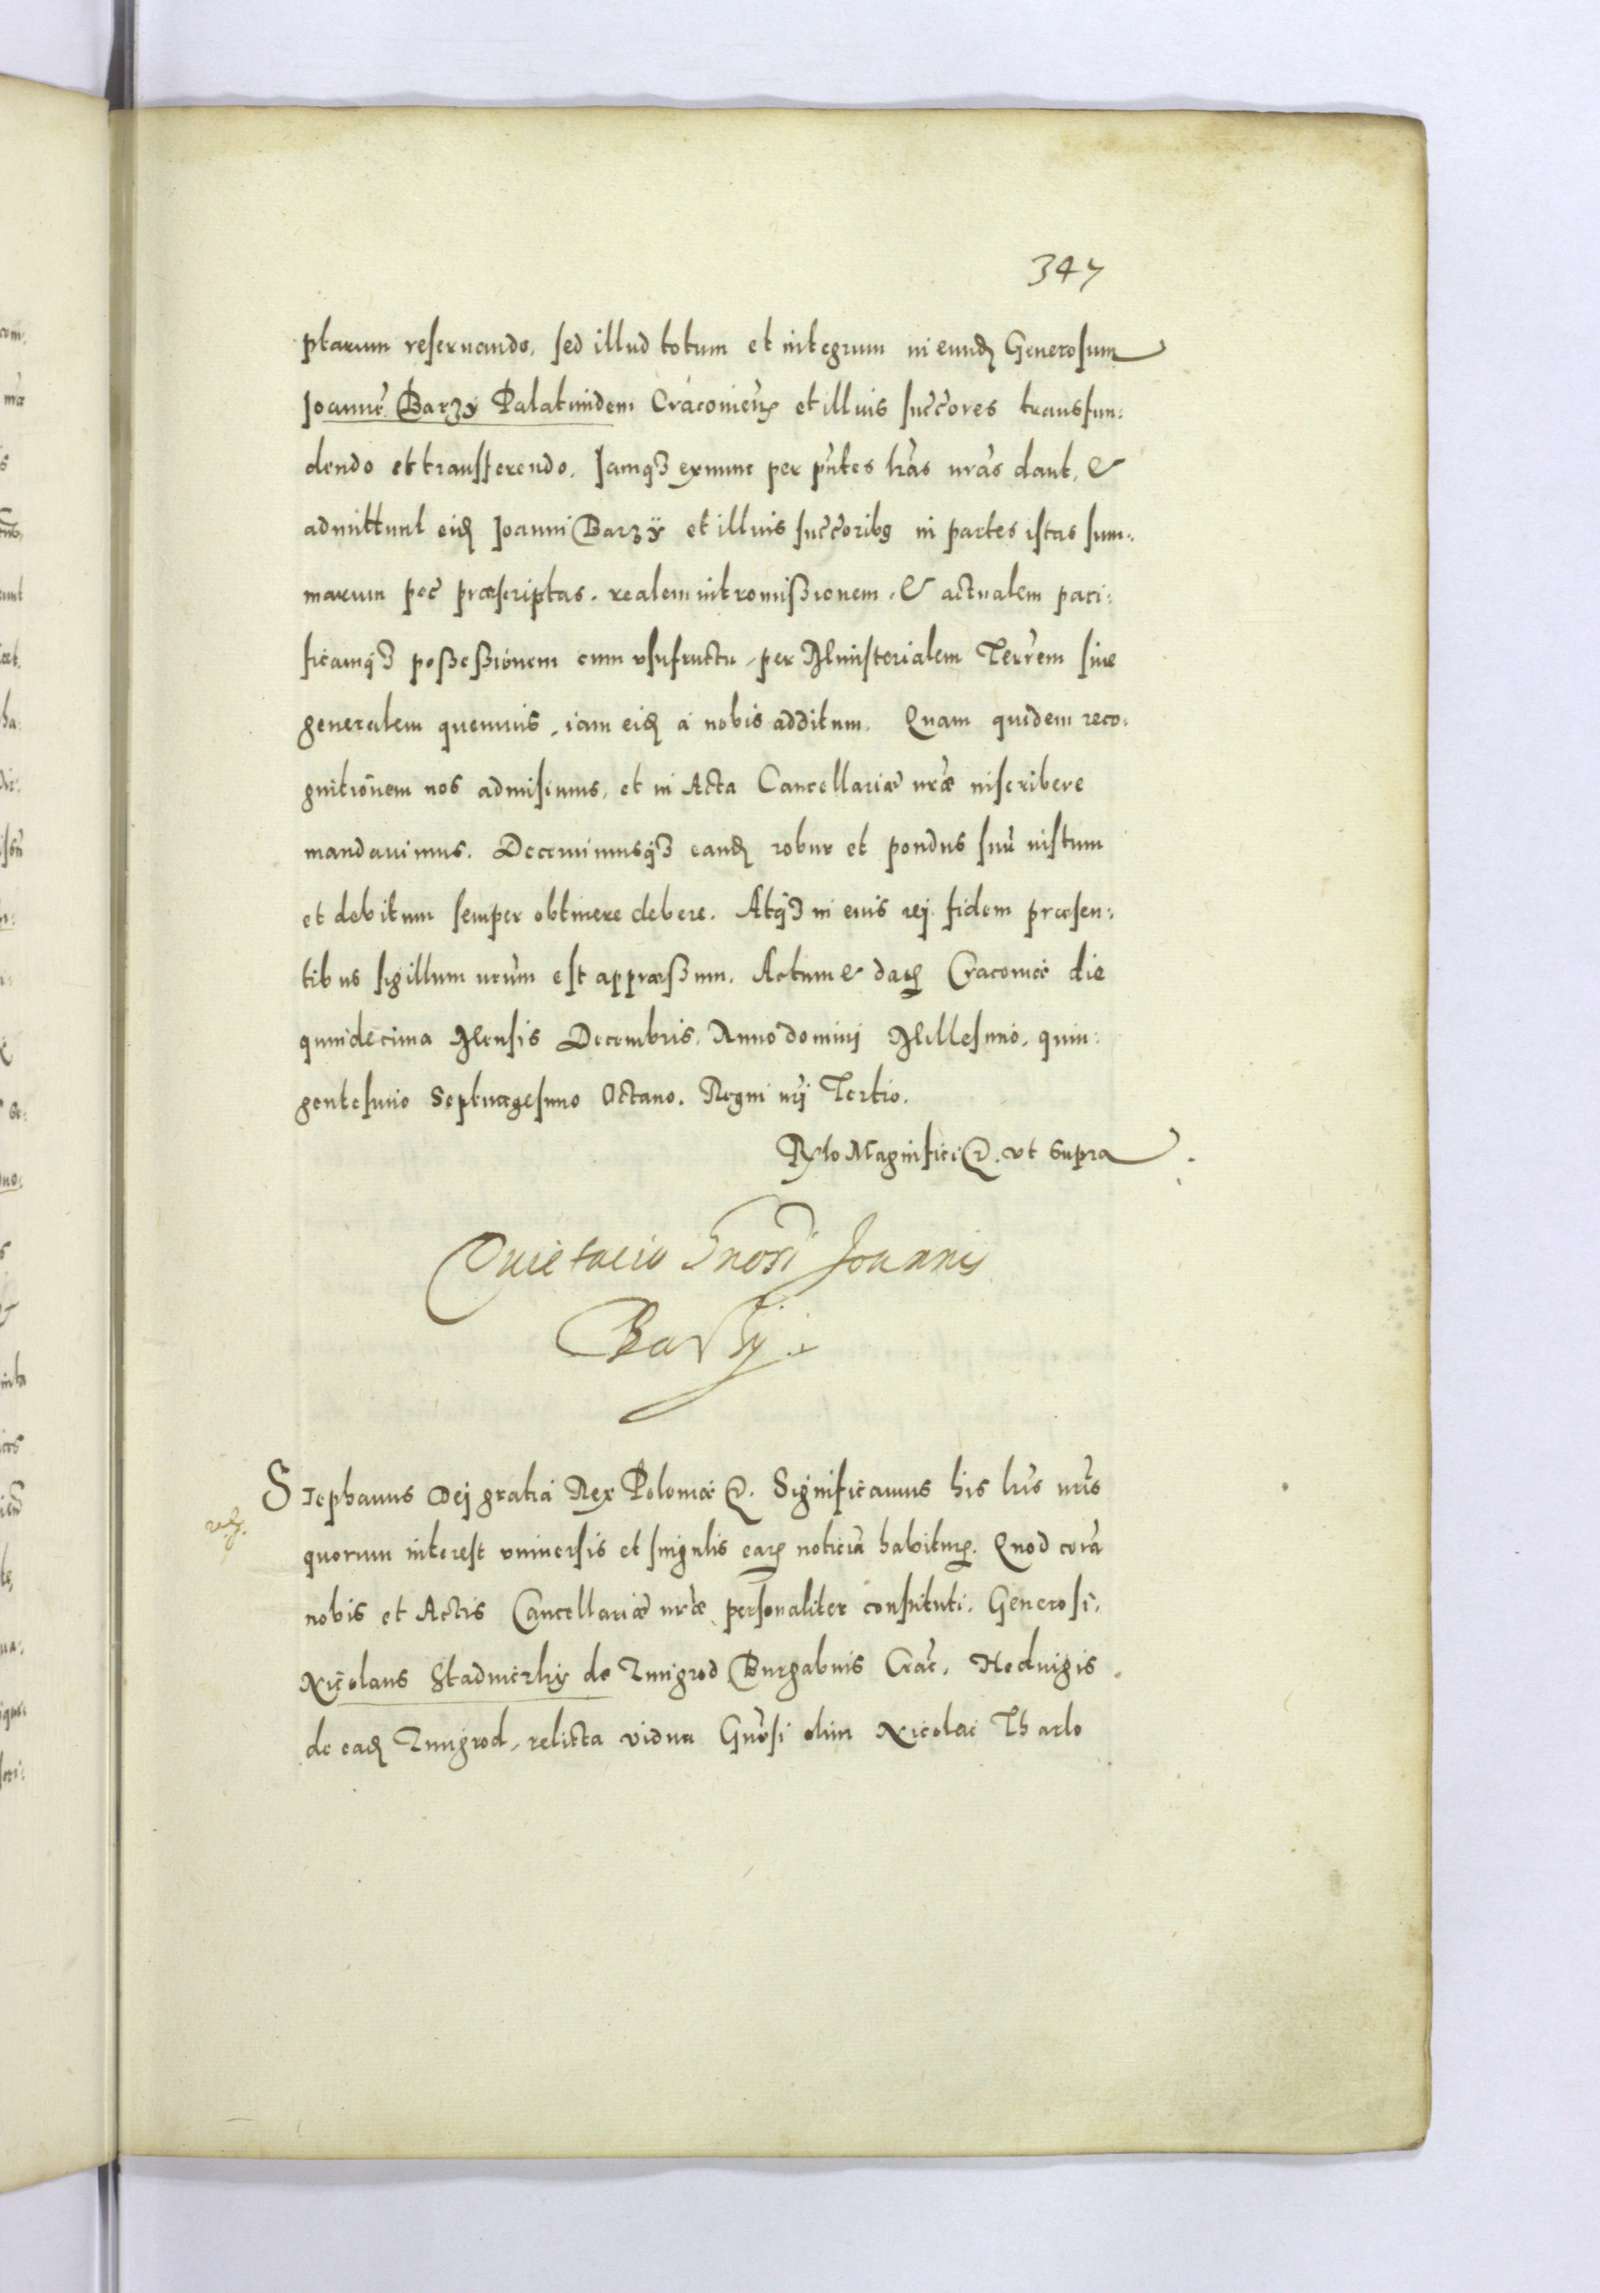 347
ptarum reseruando, sed illud totum et integrum in eund Generosum
Joannē Barzÿ Palatinidem Cracovien et illius succores transfun:
dendo et transferendo. Jamq3 exnunc per pntes lras nras dant, &
admittunt eid Joanni Barzÿ et illius succoribg in partes istas sum:
marum pec præscriptas. realem intromißionem, & actualem paci:
ficamq3 poßeßionem cum vsufructu, per Ministerialem Terrem siue
generalem quemuis, iam eid a nobis additum. Quam quidem reco:
gnitionem nos admisimus, et in Acta Cancellariæ nræ inscribere
mandauimus. Decernimusq3 eand robur et pondus suū iustum
et debitum semper obtinere debere. Atq3 in eius rej fidem præsen:
tibus sigillum nrum est appræßum. Actum & dat Cracoviæ die
quindecima Mensis Decembris. Anno dominj Millesimo, quin:
gentesimo Septuagesimo Octauo. Regni nrj Tertio.
Rlo Magnifici &. vt supra
Quietacio Gnosi Joannis
Barzÿ.
Stephanus Dej gratia Rex Poloniæ &. Significamus his lris nris
quorum interest vniuersis et singulis ear noticiā habitur. Quod corā
nobis et Actis Cancellariæ nræ personaliter constituti. Generosi,
Nicolaus Stadniczkÿ de Zmigrod Burgabius Crac. Heduigis
de ead Zmigrod, relicta vidua Gnosi olim Nicolai Tharlo